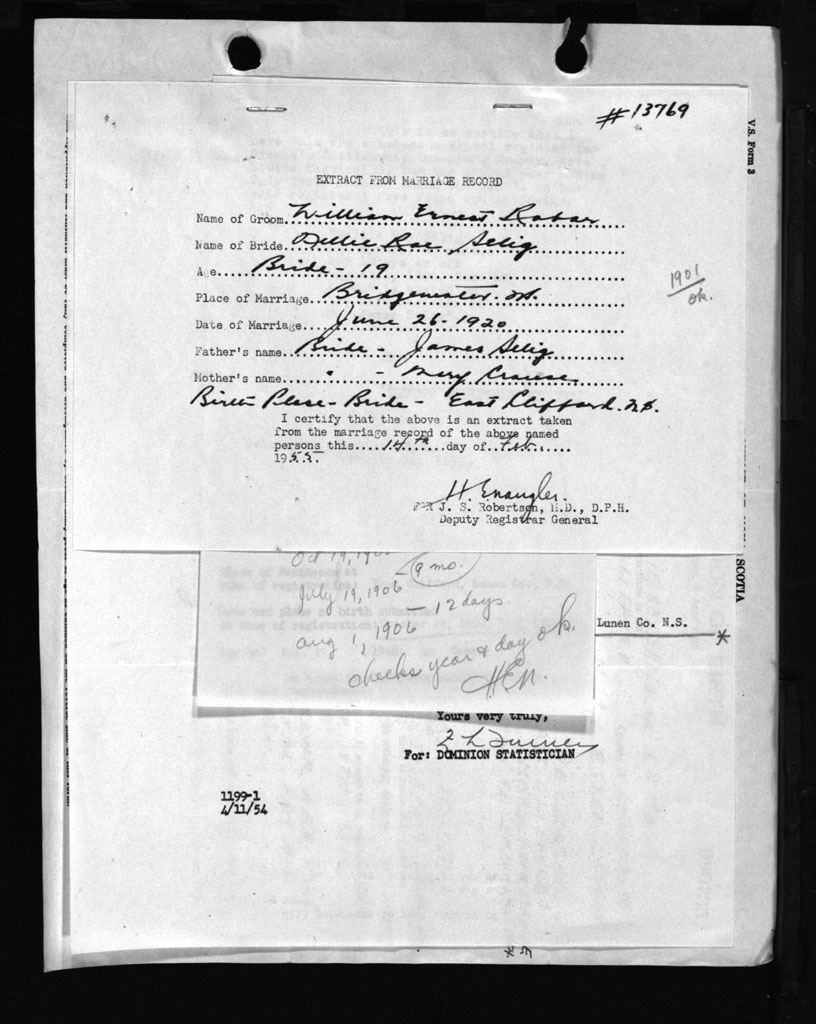 #13769
V.S. Form 3
EXTRACT FROM MARRIAGE RECORD
Name of Groom William Ernest Rabar
Name of Bride Dellie Rae Selig
Age Bride - 19
1901
ok.
Place of Marriage Bridgewater. N.S.
Date of Marriage June 26 - 1920
Father's name Bride - James Selig
Mother's name " - Mary Crause
Birth Place - Bride - East Clifford. N.S.
I certify that the above is an extract taken
from the marriage record of the above named
persons this 14th day of Feb.
1955.
H. Enaugler.
FOR J. S. Robertson, M.D., D.P.H.
Deputy Registrar General
SCOTIA
Oct 19, 190
July 19, 1906 - 9 mo.
Aug 1, 1906 - 12 days.
checks year & day ok.
HEN.
Lunen Co. N.S.
*
Yours very truly,
For: DOMINION STATISTICIAN
1199-1
4/11/54